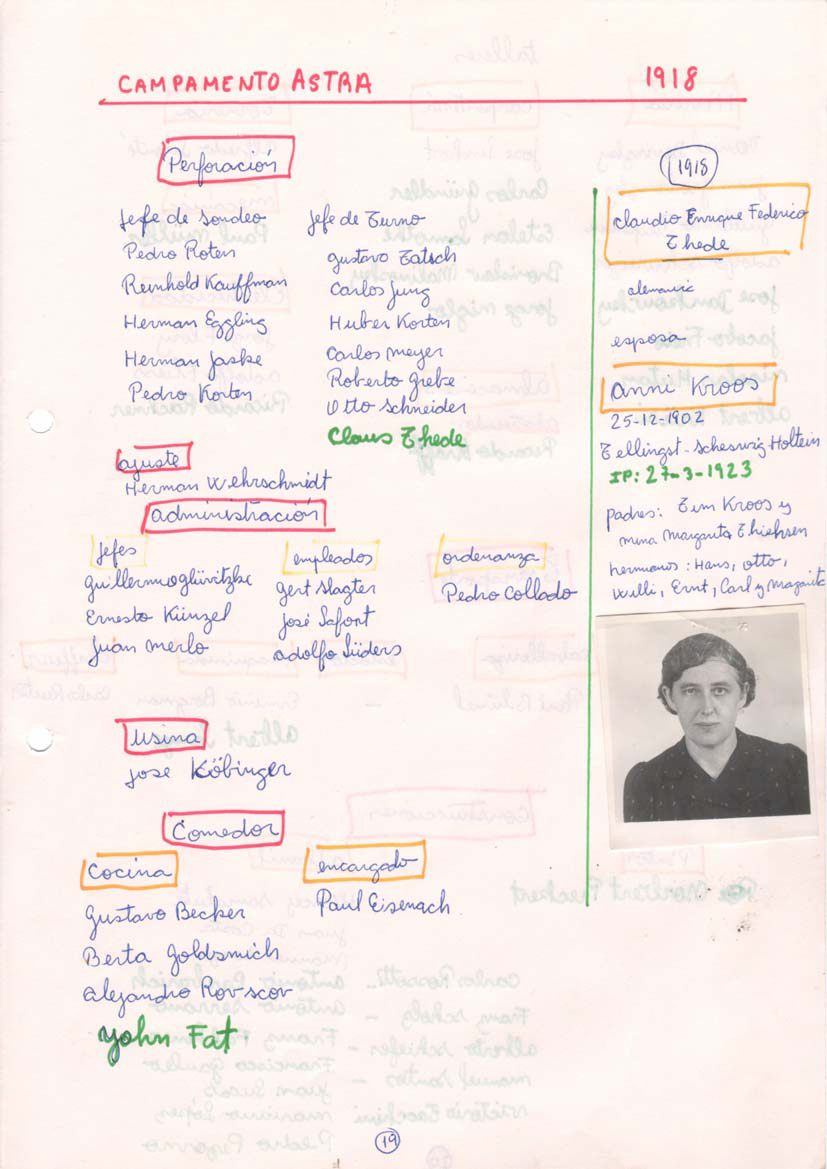 CAMPAMENTO ASTRA 1918
Perforación
Jefe de sondeo
Pedro Roten
Reinhold Kauffman
Herman Eggling
Herman Jaske
Pedro Korten
Jefe de Turno
Gustavo Tatsch
Carlos Jung
Huber Korten
Carlos Meyer
Roberto Grebe
Otto Schneider
Claus Thede
ajuste
Herman Wehrschmidt
administración
Jefes
Ernesto Künzel
Juan Merlo
empleados
Gert Slagter
José Safont
Adolfo Lüders
ordenanza
Pedro Collado
Usina
Jose Köbinger
Comedor
Cocina
Gustavo Becker
Berta Goldsmich
Alejandro Rovscov
John Fat
encargado
Paul Eisenach
1918
Claudio Enrique Federico
Thede
esposa
Anni Kroos
25-12-1902
Tellingst-Scheswig Holtein
IP: 27-3-1923
padres: Tim Kroos y
Mina Margarita Thiehsen
hermanos: Hans, Otto,
Willi, Ernt, Carl y Magarita
19